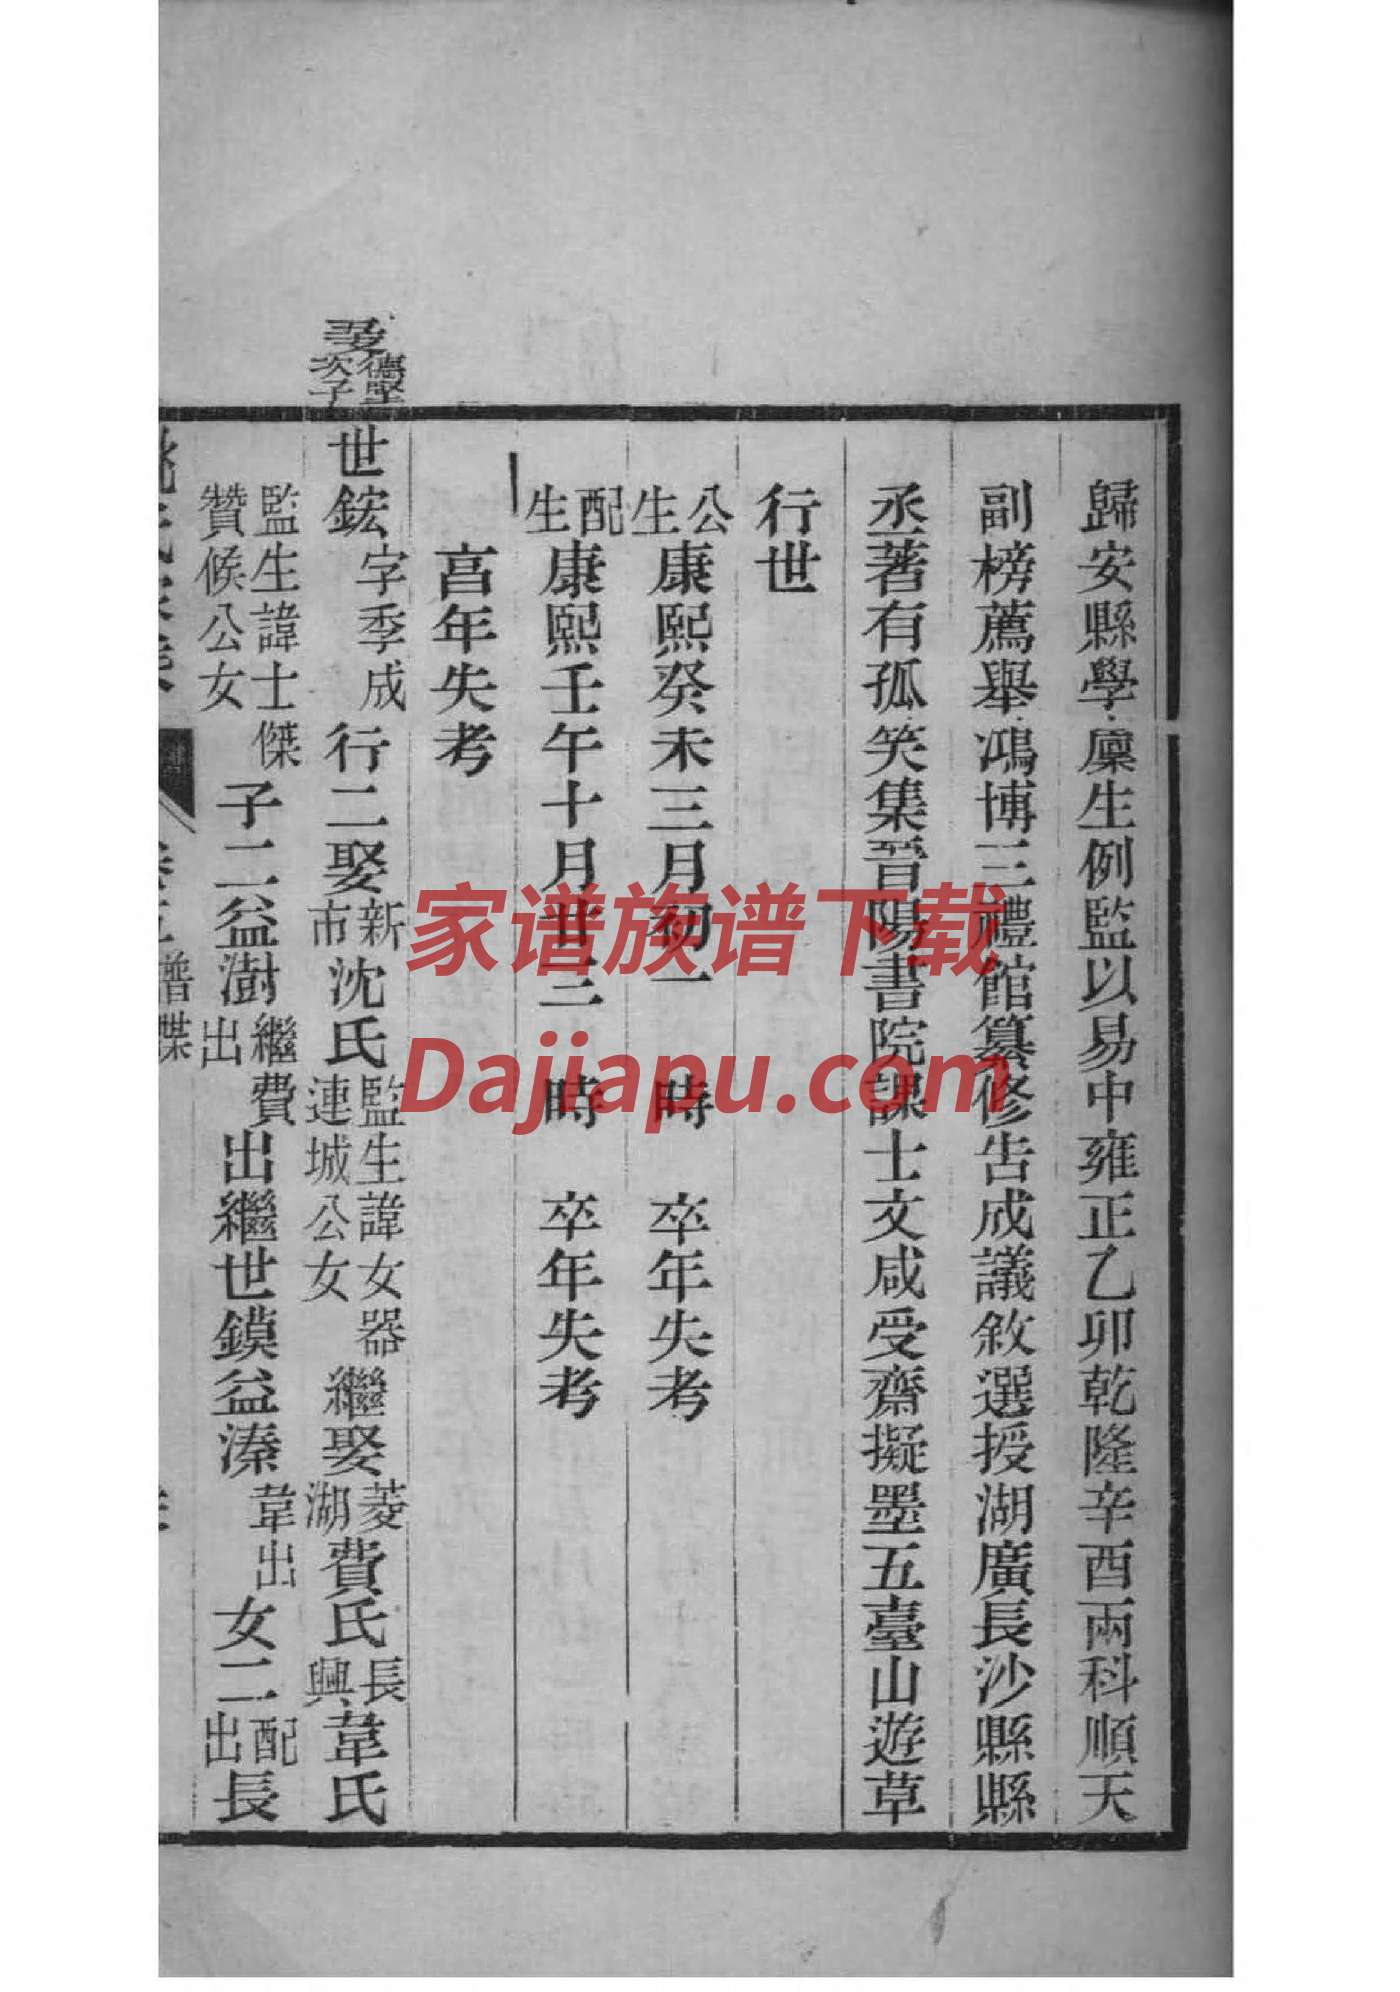 歸安縣學廩生例監以易中雍正乙卯乾隆辛酉兩科順天
副榜薦舉鴻博三禮館纂修告成議敘選授湖廣長沙縣縣
丞著有孤笑集晉陽書院課士文咸受齋擬墨五臺山遊草
行世
公生康熙癸未三月初一 時 卒年失考
配生康熙壬午十月廿三 時 卒年失考
亯年失考
德堅次子
世鋐字季成行二娶新市沈氏監生諱女器連城公女繼娶菱湖費氏長興韋氏
監生諱士傑贊候公女子二益澍繼費出出繼世鏌益溱韋出女二配出長
譜牒
家谱族谱下载
Dajiapu.com